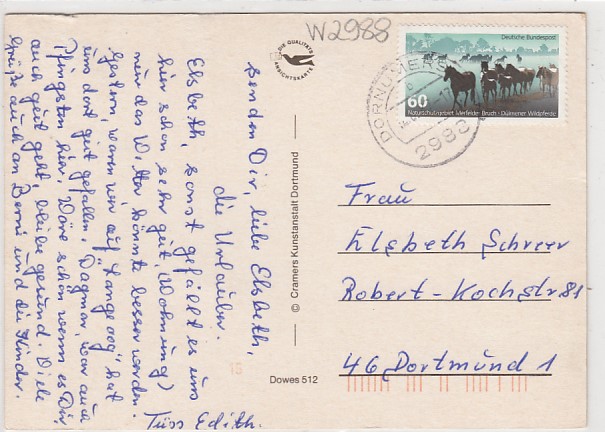 W2988
DIE QUALITÄTS
ANSICHTSKARTE
Deutsche Bundespost
60
Naturschutzgebiet Merfelder Bruch · Dülmener Wildpferde
DORNUM
2983
senden Dir, liebe Elsbeth,
die Urlauber.
Elsbeth, sonst gefällt es uns
hier schon sehr gut (Wohnung)
nur das Wetter könnte besser werden.
Gestern waren wir auf "Langeoog" hat
uns dort gut gefallen. Dagmar, war auch
Pfingsten hier. Wäre schön wenn es Dir
auch gut geht, bleibe gesund. Viele
Grüße auch an Bernd und die Kinder.
Tüss Edith.
© Cramers Kunstanstalt Dortmund
Dowes 512
15
Frau
Elsbeth Schreer
Robert-Kochstr 81
46 Dortmund 1